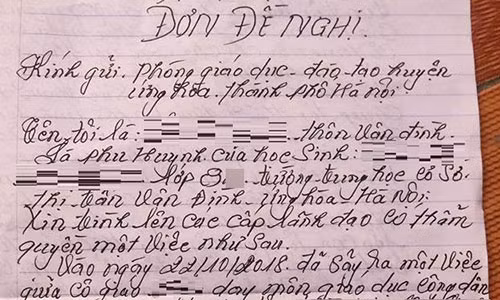 ĐƠN ĐỀ NGHỊ.
Kính gửi. Phòng giáo dục - đào tạo huyện
ứng hòa. Thành phố Hà nội.
Tên tôi là: thôn vân đình.
Là phụ Huynh của học Sinh:
lớp 8 trường trung học cơ Sở.
thị trấn Vân Đình - ứng hòa Hà Nội.
Xin trình lên các cấp lãnh đạo có thẩm
quyền một Việc như Sau.
Vào ngày 22/10/2018 đã Sảy ra một Việc
giữa cô giáo dạy môn giáo dục công dân